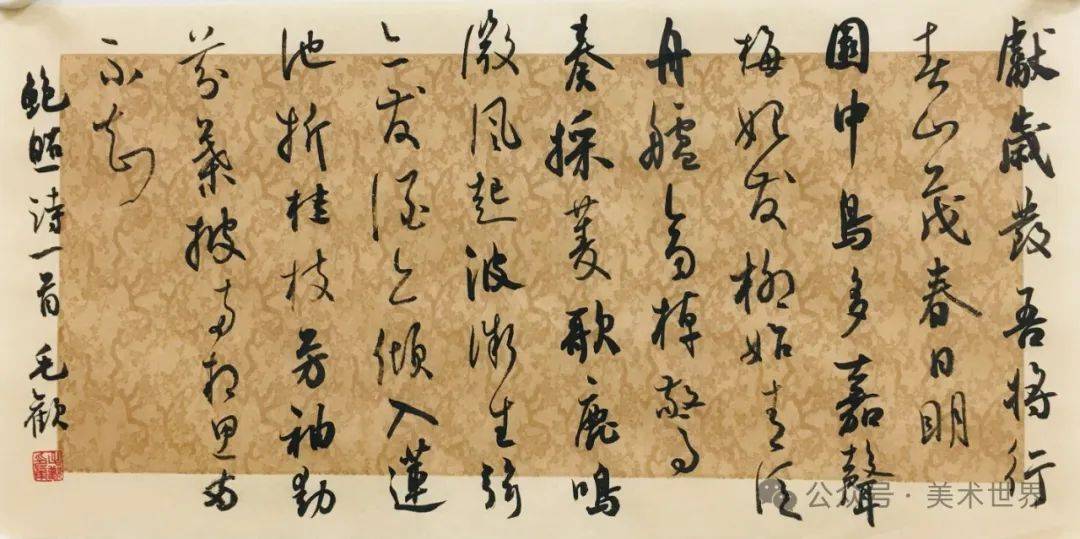 獻歲發吾將行
春山茂春日明
園中鳥多嘉聲
梅始發柳始青泛
舟艫齊棹驚
奏採菱歌鹿鳴
微風起波微生弦
亦發酒亦傾入蓮
池折桂枝芳袖動
芬葉披兩相思兩
不知
鮑照詩一首 毛歡
公众号 · 美术世界